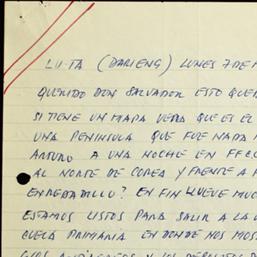 LU-TA (DARIENG) LUNES 7 DE M
QUERIDO DON SALVADOR ESTO QUER
SI TIENE UN MAPA VERA QUE ES EL
UNA PENINSULA QUE FUE NADA M
ARTURO A UNA NOCHE EN FFCC
AL NORTE DE COREA Y FRENTE A
ENREDADILLO? EN FIN LLUEVE MUC
ESTAMOS LISTOS PARA SALIR A LA
CUELA PRIMARIA EN DONDE NOS MOS